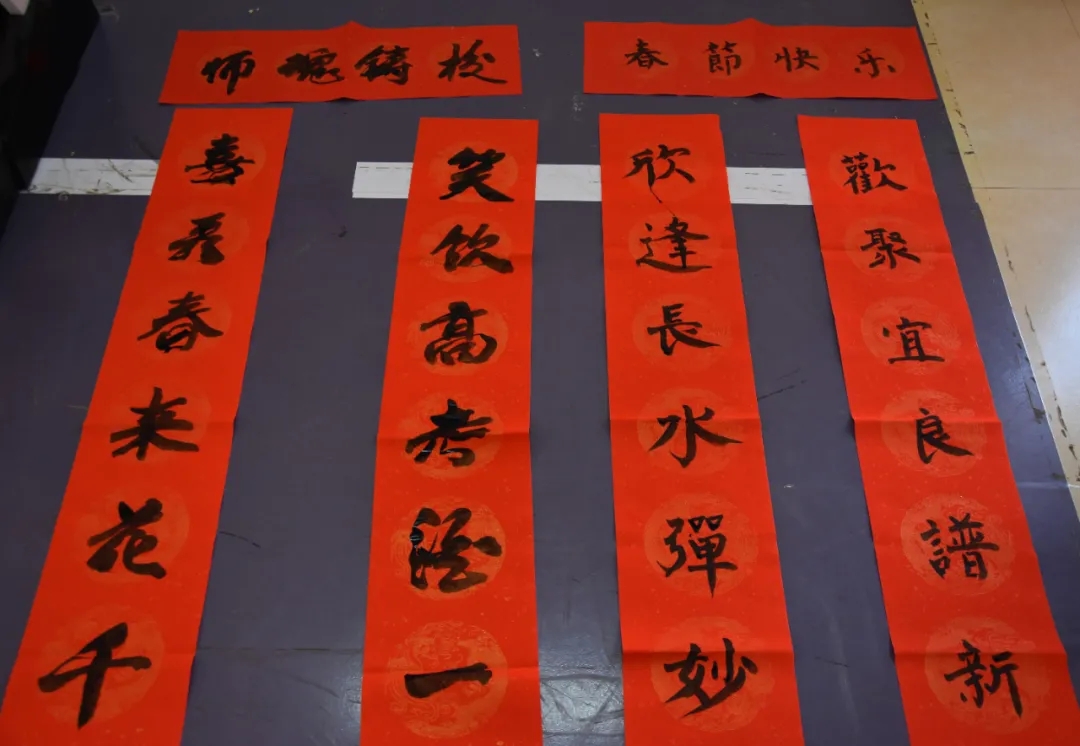 师魂铸校
春節快乐
喜春来花千
笑饮高考酒一
欣逢長水彈妙
歡聚宜良譜新